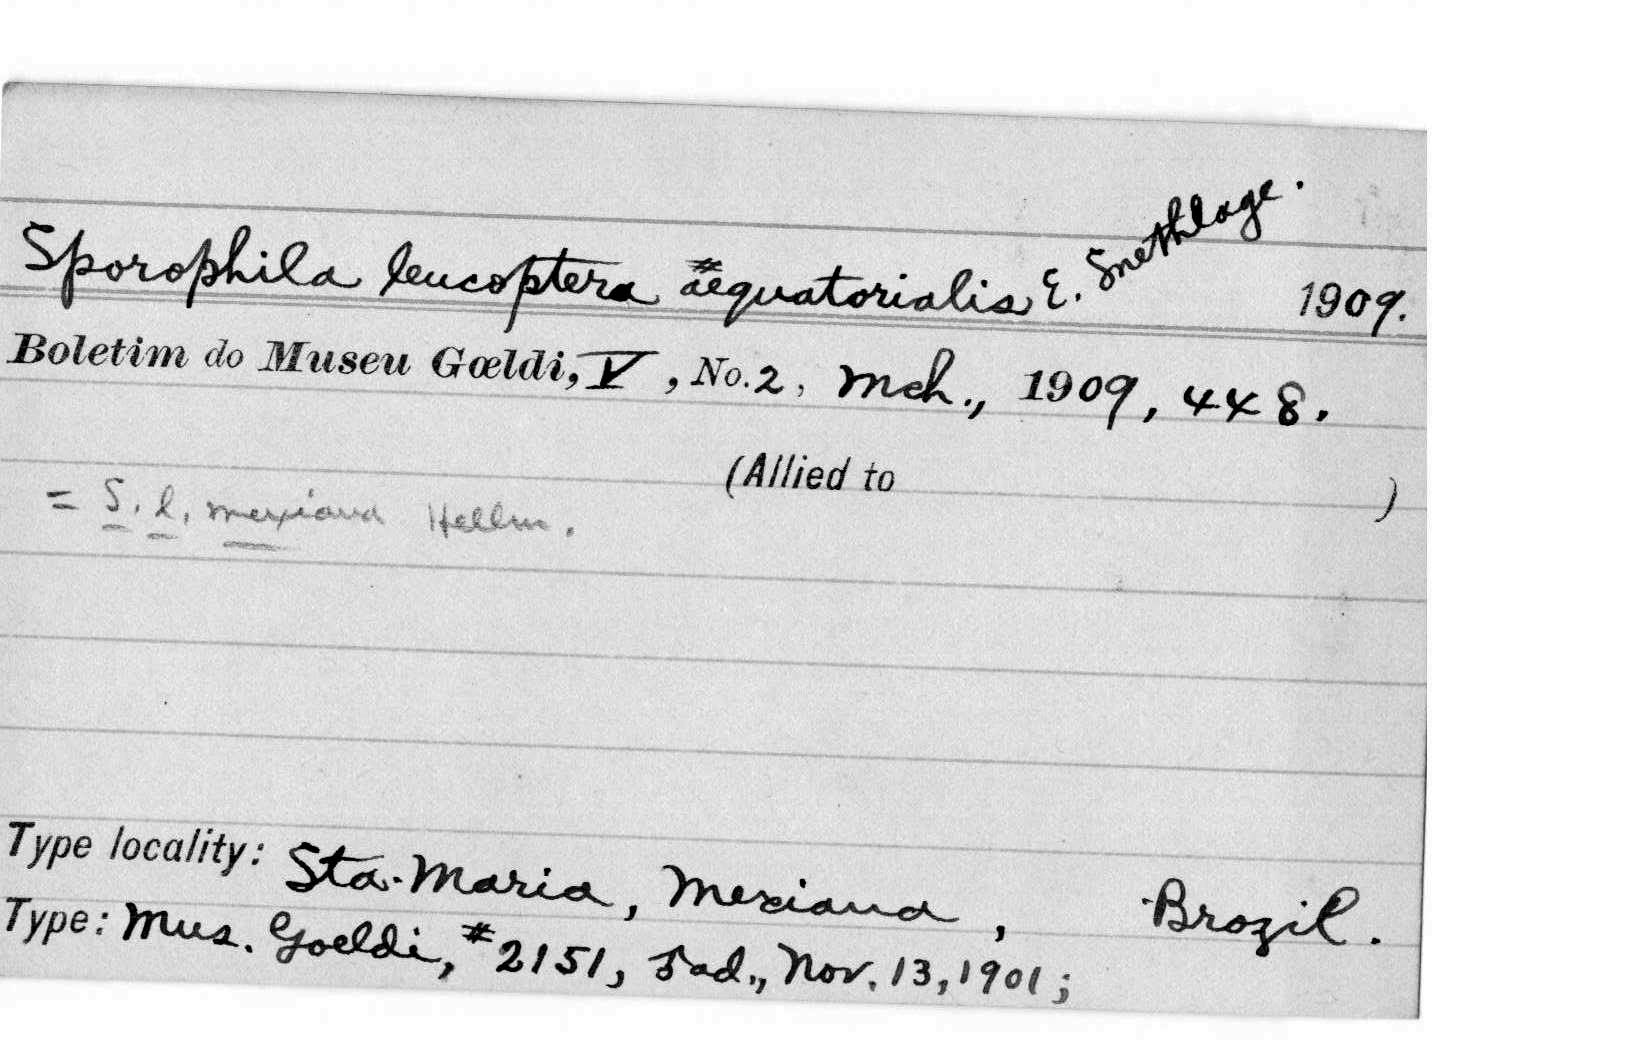 Sporophila leucoptera æquatorialis E. Snethlage. 1909.
Boletim do Museu Gœldi, V, No. 2, Mch., 1909, 448.
(Allied to )
= S. l. mexiana Hellm.
Type locality: Sta. Maria, Mexiana, Brazil.
Type: Mus. Goeldi, #2151, ad., Nov. 13, 1901;